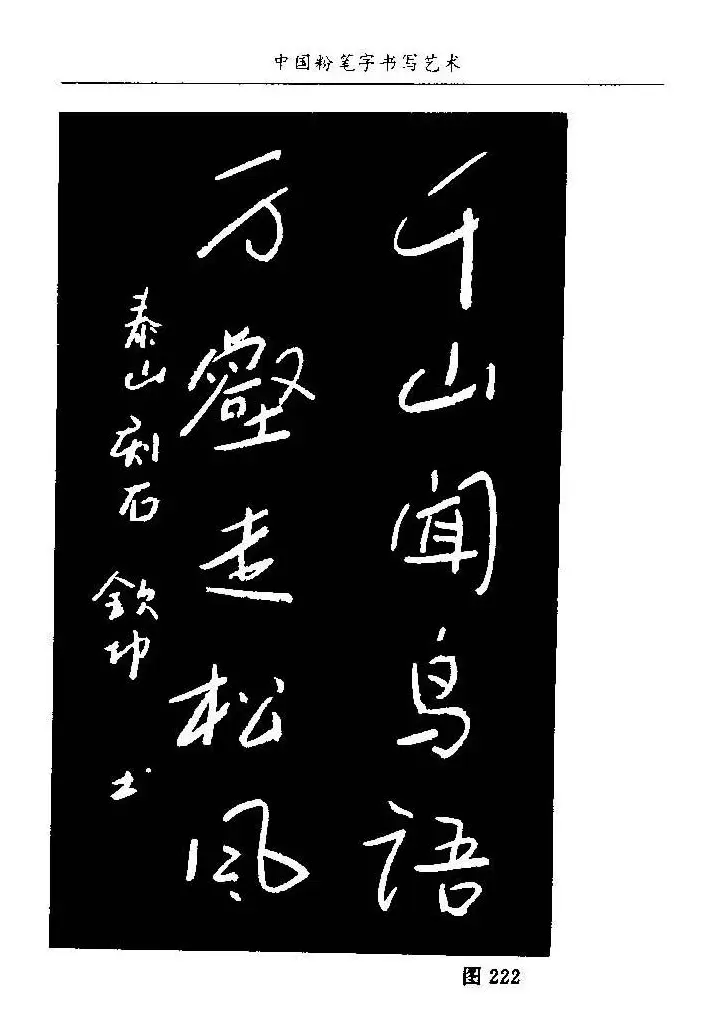 中国粉笔字书写艺术
千山闻鸟語
万壑走松风
泰山刻石 钦坤书
图 222